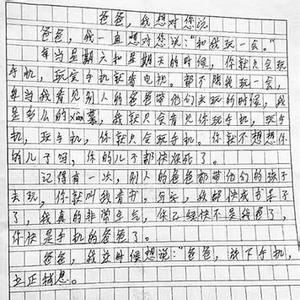 爸爸，我想对您说
爸爸，我一直想对您说："和我玩一会。"
每当星期六和星期天的时候，你就只会玩
手机，玩完手机就看电视。都不陪我玩一会，
每当我看见别人的爸爸带他们去玩的时候，我
是多么的xian慕，我就只会看见你玩手机，玩手
机，玩手机，你就只会玩手机。你就不想想你
的儿子吗，你的儿子都快烦死了。
记得有一次，别人的爸爸都带他们的孩子
去玩，你就叫我看书，写字，我都快成书呆子
了，我真的非常生气，你已经快不是我爸了，
你快是手机的爸爸了。
爸爸，我这时候想说："爸爸，放下手机，